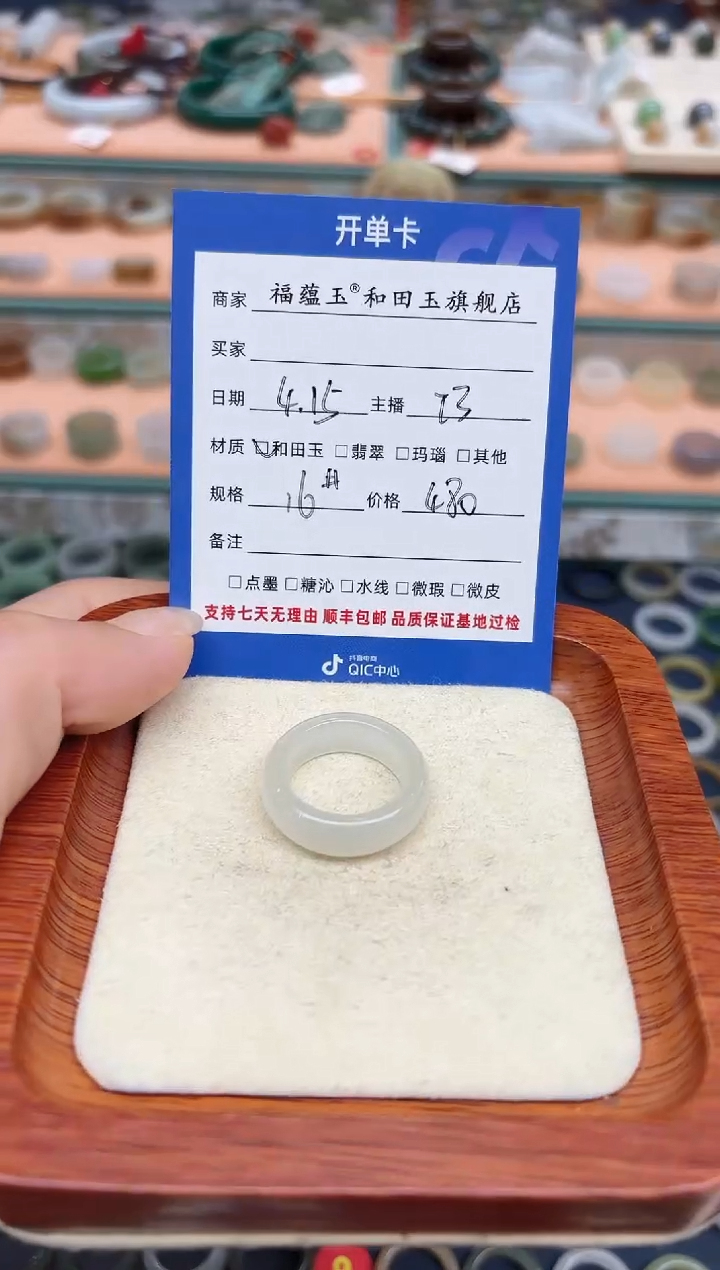 开单卡
商家 福蕴玉®和田玉旗舰店
买家
日期 4.15 主播
材质 ☑和田玉 □翡翠 □玛瑙 □其他
规格 16# 价格 480
备注
□点墨 □糖沁 □水线 □微瑕 □微皮
支持七天无理由 顺丰包邮 品质保证基地过检
抖音电商
QIC中心